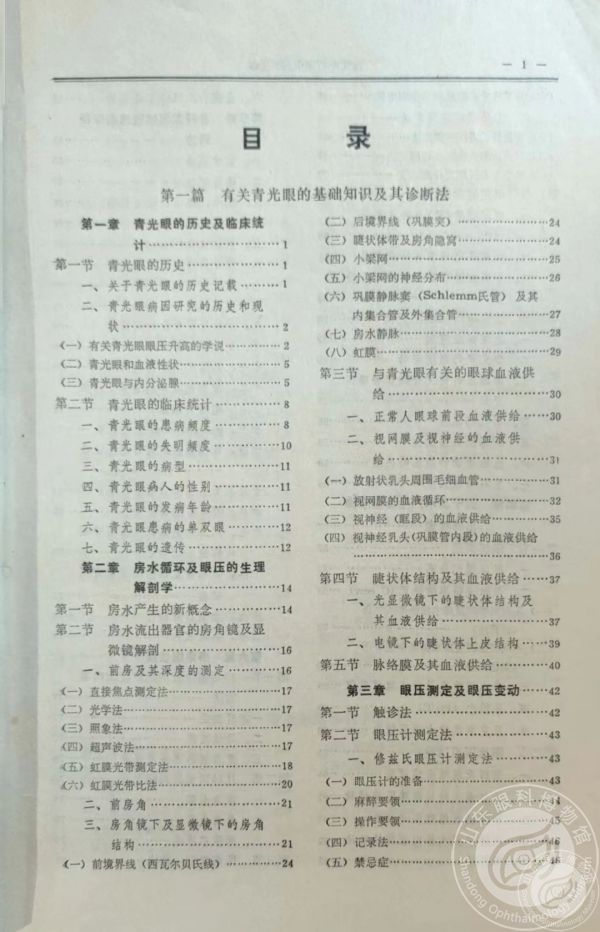 — 1 —
目 录
第一篇 有关青光眼的基础知识及其诊断法
第一章 青光眼的历史及临床统
计……………………1
第一节 青光眼的历史……………………1
一、关于青光眼的历史记载…………1
二、青光眼病因研究的历史和现
状……………………2
(一)有关青光眼眼压升高的学说…………2
(二)青光眼和血液性状……………………5
(三)青光眼与内分泌腺……………………5
第二节 青光眼的临床统计………………8
一、青光眼的患病频度………………8
二、青光眼的失明频度………………10
三、青光眼的病型……………………11
四、青光眼病人的性别………………11
五、青光眼的发病年龄………………11
六、青光眼患病的单双眼……………12
七、青光眼的遗传……………………12
第二章 房水循环及眼压的生理
解剖学……………………14
第一节 房水产生的新概念………………14
第二节 房水流出器官的房角镜及显
微镜解剖……………………16
一、前房及其深度的测定……………16
(一)直接焦点测定法……………………17
(二)光学法……………………17
(三)照象法……………………17
(四)超声波法……………………17
(五)虹膜光带测定法……………………18
(六)虹膜光带比法……………………20
二、前房角……………………21
三、房角镜下及显微镜下的房角
结构……………………21
(一)前境界线(西瓦尔贝氏线)…………24
(二)后境界线(巩膜突)…………………24
(三)睫状体带及房角隐窝………………24
(四)小梁网……………………25
(五)小梁网的神经分布…………………26
(六)巩膜静脉窦(Schlemm氏管)及其
内集合管及外集合管………………27
(七)房水静脉……………………28
(八)虹膜……………………29
第三节 与青光眼有关的眼球血液供
给……………………30
一、正常人眼球前段血液供给………30
二、视网膜及视神经的血液供
给……………………31
(一)放射状乳头周围毛细血管…………31
(二)视网膜的血液循环…………………32
(三)视神经(眶段)的血液供给…………35
(四)视神经乳头(巩膜管内段)的血液供给
……………………36
第四节 睫状体结构及其血液供给………37
一、光显微镜下的睫状体结构及
其血液供给……………………37
二、电镜下的睫状体上皮结构………39
第五节 脉络膜及其血液供给……………40
第三章 眼压测定及眼压变动……42
第一节 触诊法……………………42
第二节 眼压计测定法……………………43
一、修兹氏眼压计测定法……………43
(一)眼压计的准备……………………43
(二)麻醉要领……………………44
(三)操作要领……………………45
(四)记录法……………………46
(五)禁忌症……………………46
山东眼科博物馆
Shandong Ophthalmology Museum